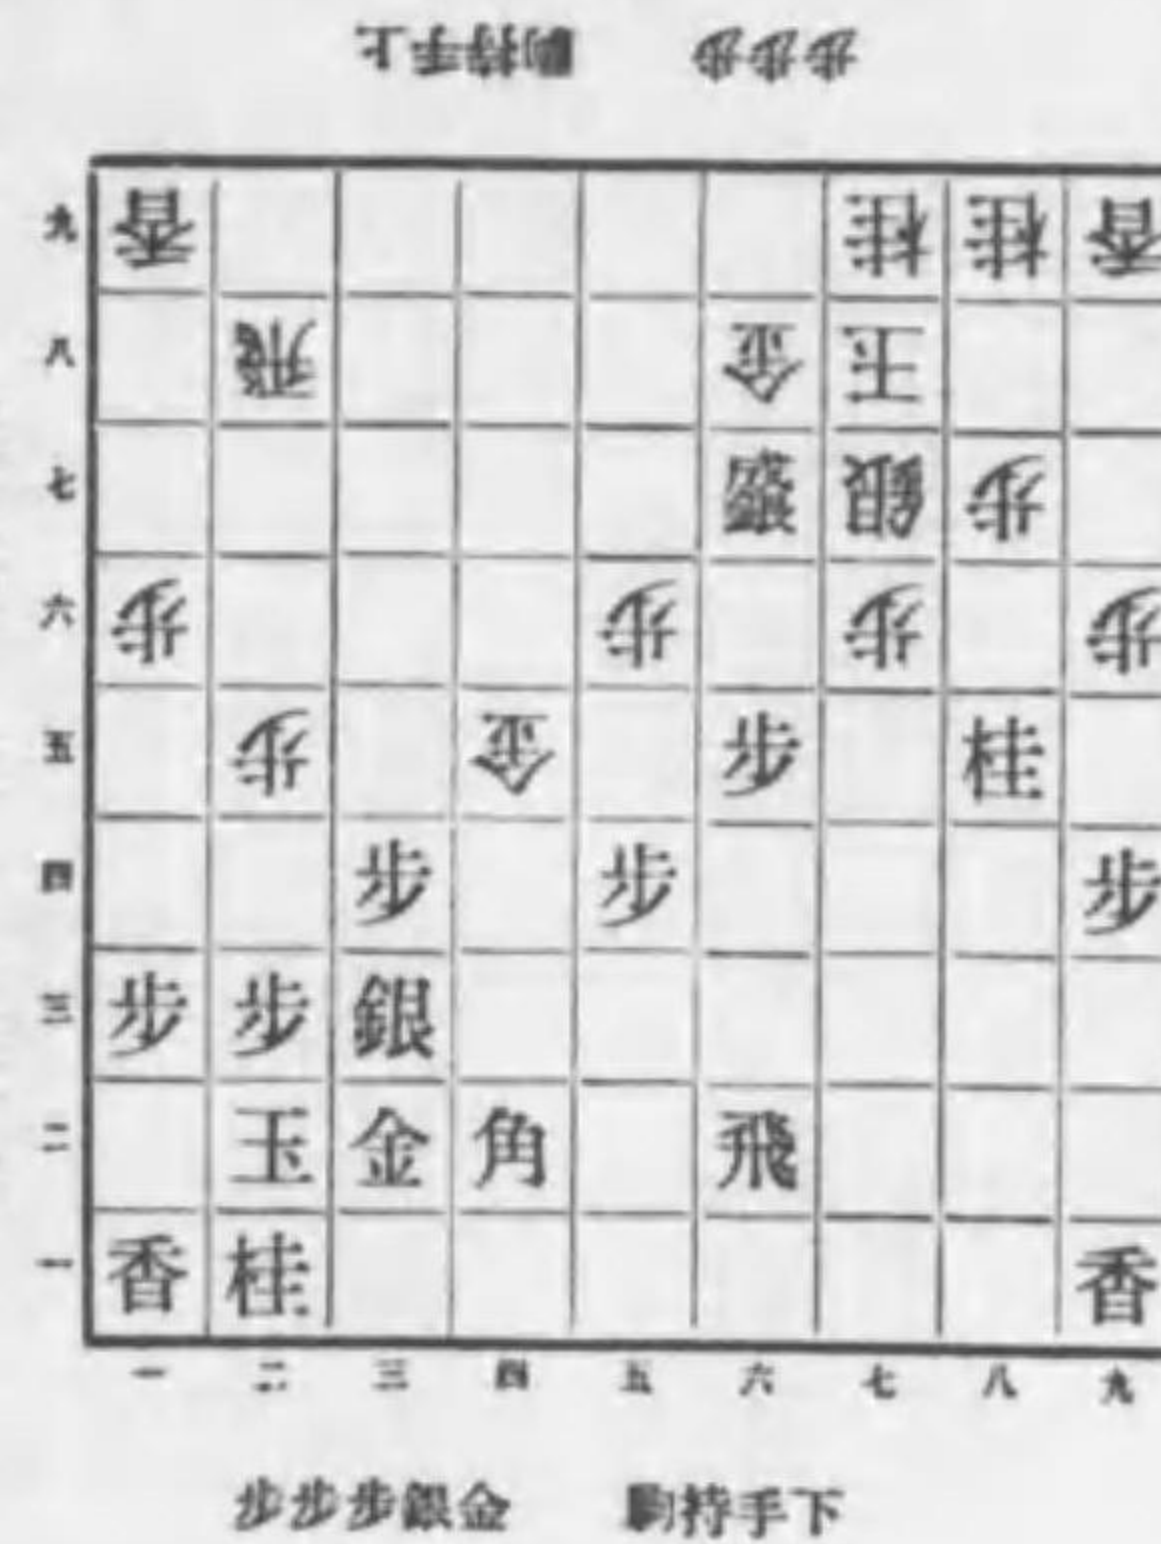 上手持駒 歩歩歩
九 香 桂 桂 香
八 飛 金 玉
七 銀 歩
六 歩 歩 歩 歩
五 歩 金 歩 桂
四 歩 歩 歩
三 歩 歩 銀
二 玉 金 角 飛
一 香 桂 香
一 二 三 四 五 六 七 八 九
下手持駒 金銀歩歩歩